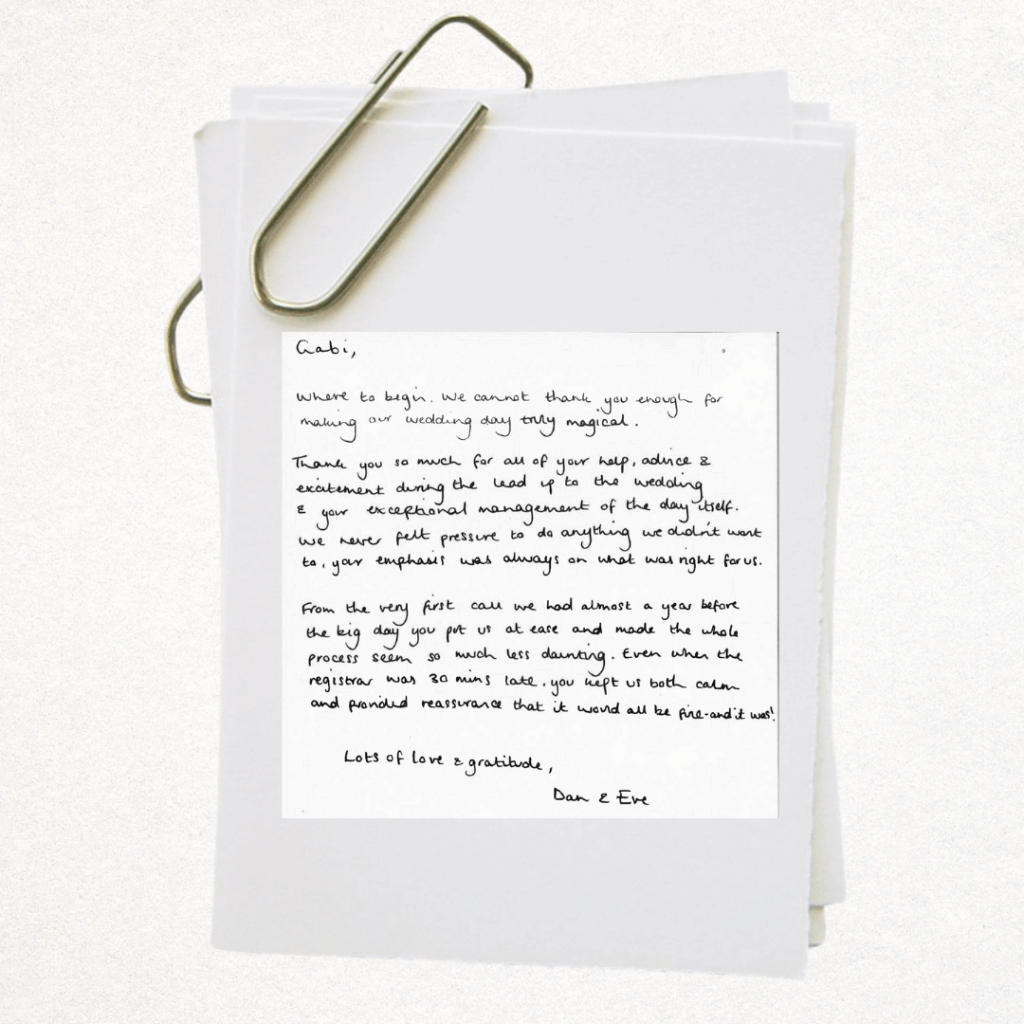 Gabi,
Where to begin. We cannot thank you enough for
making our wedding day truly magical.
Thank you so much for all of your help, advice &
excitement during the lead up to the wedding
& your exceptional management of the day itself.
We never felt pressure to do anything we didn't want
to, your emphasis was always on what was right for us.
From the very first call we had almost a year before
the big day you put us at ease and made the whole
process seem so much less daunting. Even when the
registrar was 30 mins late, you kept us both calm
and provided reassurance that it would all be fine-and it was!
Lots of love & gratitude,
Dan & Eve